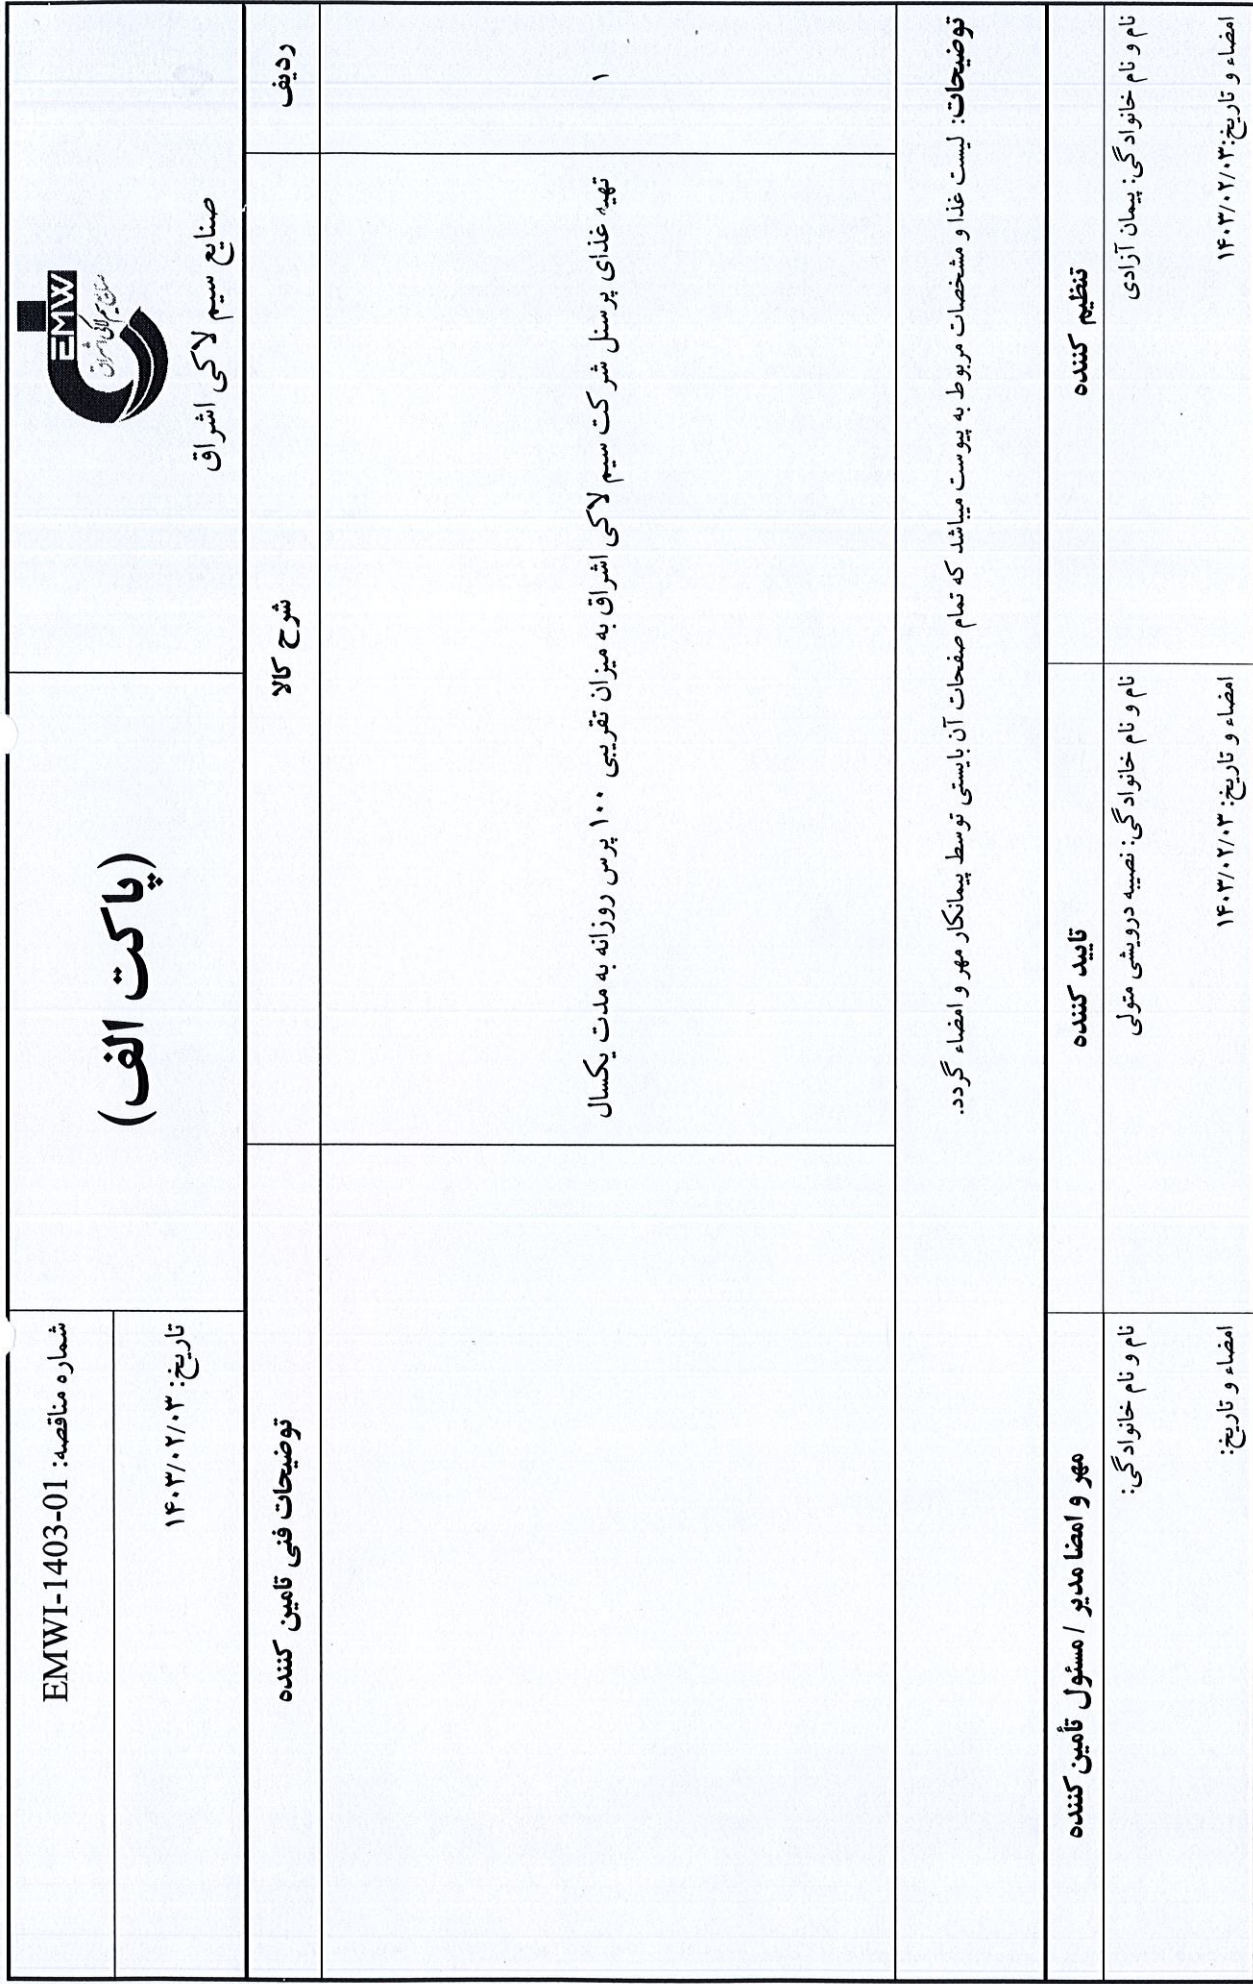 EMW
صنایع سیم لاکی اشراق
صنایع سیم لاکی اشراق
(پاکت الف)
شماره مناقصه: EMWI-1403-01
تاریخ: ۱۴۰۳/۰۲/۰۳
ردیف
شرح کالا
توضیحات فنی تامین کننده
۱
تهیه غذای پرسنل شرکت سیم لاکی اشراق به میزان تقریبی ۱۰۰ پرس روزانه به مدت یکسال
توضیحات: لیست غذا و مشخصات مربوط به پیوست میباشد که تمام صفحات آن بایستی توسط پیمانکار مهر و امضاء گردد.
تنظیم کننده
تایید کننده
مهر و امضا مدیر / مسئول تأمین کننده
نام و نام خانوادگی: پیمان آزادی
نام و نام خانوادگی: نصیبه درویشی متولی
نام و نام خانوادگی:
امضاء و تاریخ:۱۴۰۳/۰۲/۰۳
امضاء و تاریخ: ۱۴۰۳/۰۲/۰۳
امضاء و تاریخ: